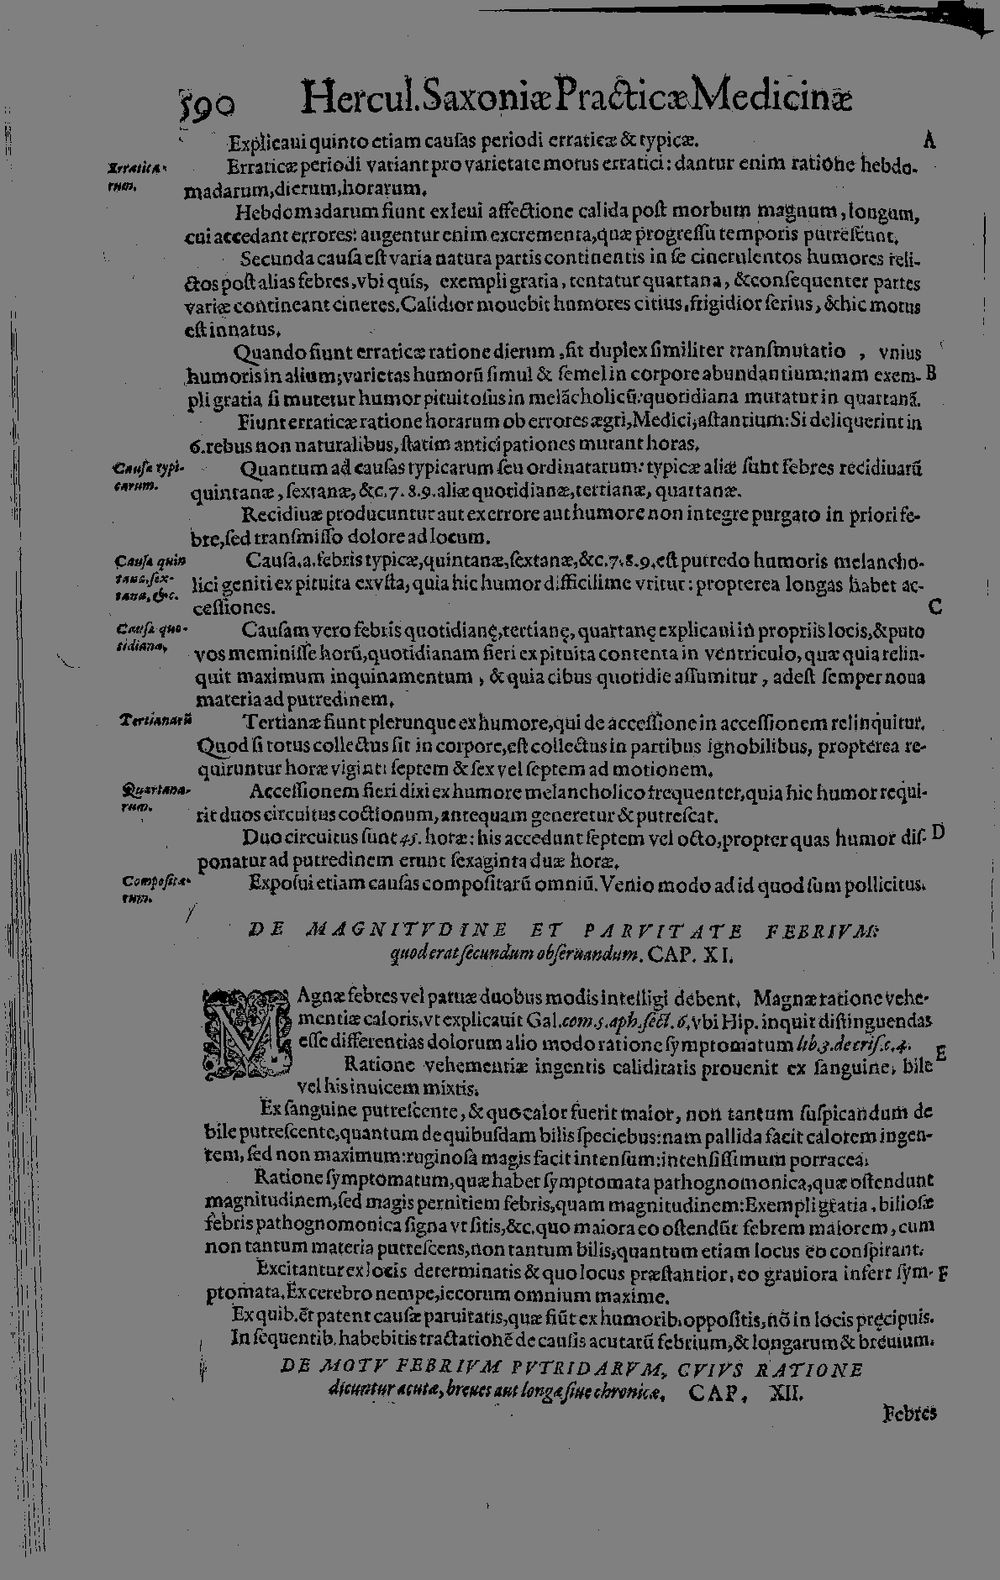 590 Hercul. Saxoniæ Practicæ Medicinæ
Explicaui quinto etiam cauſas periodi erraticæ & typicæ. A
Erratica-
rum.
Erraticæ periodi variant pro varietate motus erratici: dantur enim ratione hebdo-
madarum, dierum, horarum.
Hebdomadarum fiunt ex leui affectione calida poſt morbum magnum, longum,
cui accedant errores: augentur enim excrementa, quæ progreſſu temporis putreſcunt.
Secunda cauſa eſt varia natura partis continentis in ſe cinerulentos humores reli-
ctos poſt alias febres, vbi quis, exempli gratia, tentatur quartana, & conſequenter partes
variæ contineant cineres. Calidior mouebit humores citius, frigidior ſerius, & hic motus
eſt innatus.
Quando fiunt erraticæ ratione dierum, fit duplex ſimiliter tranſmutatio, vnius
humoris in alium; varietas humorū ſimul & ſemel in corpore abundantium: nam exem- B
pli gratia ſi mutetur humor pituitoſus in melācholicū: quotidiana mutatur in quartanā.
Fiunt erraticæ ratione horarum ob errores ægri, Medici, aſtantium: Si deliquerint in
6. rebus non naturalibus, ſtatim anticipationes mutant horas.
Cauſa typi-
carum.
Quantum ad cauſas typicarum ſeu ordinatarum: typicæ aliæ ſunt febres recidiuarū
quintanæ, ſextanæ, &c. 7. 8. 9. aliæ quotidianæ, tertianæ, quartanæ.
Recidiuæ producuntur aut ex errore aut humore non integre purgato in priori fe-
bre, ſed tranſmiſſo dolore ad locum.
Cauſa quin
tana, ſex-
tana, &c.
Cauſa. a. febris typicæ, quintanæ, ſextanæ, &c. 7. 8. 9. eſt putredo humoris melancho-
lici geniti ex pituita exvſta, quia hic humor difficilime vritur: propterea longas habet ac-
ceſſiones. C
Cauſa quo-
tidiana.
Cauſam vero febris quotidianę, tertianę, quartanę explicaui in propriis locis, & puto
vos meminiſſe horū, quotidianam fieri ex pituita contenta in ventriculo, quæ quia relin-
quit maximum inquinamentum, & quia cibus quotidie aſſumitur, adeſt ſemper noua
materia ad putredinem.
Tertianarū
Tertianæ fiunt plerunque ex humore, qui de acceſſione in acceſſionem relinquitur.
Quod ſi totus collectus ſit in corpore, eſt collectus in partibus ignobilibus, propterea re-
quiruntur horæ viginti ſeptem & ſex vel ſeptem ad motionem.
Quartana-
rum.
Acceſſionem fieri dixi ex humore melancholico frequenter, quia hic humor requi-
rit duos circuitus coctionum, antequam generetur & putreſcat.
Duo circuitus ſunt 45. horæ: his accedunt ſeptem vel octo, propter quas humor diſ- D
ponatur ad putredinem erunt ſexaginta duæ horæ.
Compoſita-
rum.
Expoſui etiam cauſas compoſitarū omniū. Venio modo ad id quod ſum pollicitus.
DE MAGNITVDINE ET PARVITATE FEBRIVM:
quod erat ſecundum obſeruandum. CAP. XI.
MAgnæ febres vel paruæ duobus modis intelligi debent. Magnæ ratione vehe-
mentiæ caloris, vt explicauit Gal. com. 5. aph. ſect. 6. vbi Hip. inquit diſtinguendas
eſſe differentias dolorum alio modo ratione ſymptomatum lib. 3. de criſ. c. 4. E
Ratione vehementiæ ingentis caliditatis prouenit ex ſanguine, bile
vel his inuicem mixtis.
Ex ſanguine putreſcente, & quo calor fuerit maior, non tantum ſuſpicandum de
bile putreſcente, quantum de quibuſdam bilis ſpeciebus: nam pallida facit calorem ingen-
tem, ſed non maximum: ruginoſa magis facit intenſum: intenſiſſimum porracea.
Ratione ſymptomatum, quæ habet ſymptomata pathognomonica, quæ oſtendunt
magnitudinem, ſed magis pernitiem febris, quam magnitudinem: Exempli gratia, bilioſæ
febris pathognomonica ſigna vt ſitis, &c. quo maiora eo oſtendūt febrem maiorem, cum
non tantum materia putreſcens, non tantum bilis, quantum etiam locus eo conſpirant.
Excitantur ex locis determinatis & quo locus præſtantior, eo grauiora infert ſym- F
ptomata. Ex cerebro nempe, iecorum omnium maxime.
Ex quib. ēt patent cauſæ paruitatis, quæ fiūt ex humorib. oppoſitis, nō in locis pręcipuis.
In ſequentib. habebitis tractationē de cauſis acutarū febrium, & longarum & breuium.
DE MOTV FEBRIVM PVTRIDARVM, CVIVS RATIONE
dicuntur acutæ, breues aut longæ ſiue chronicæ. CAP. XII.
Febres